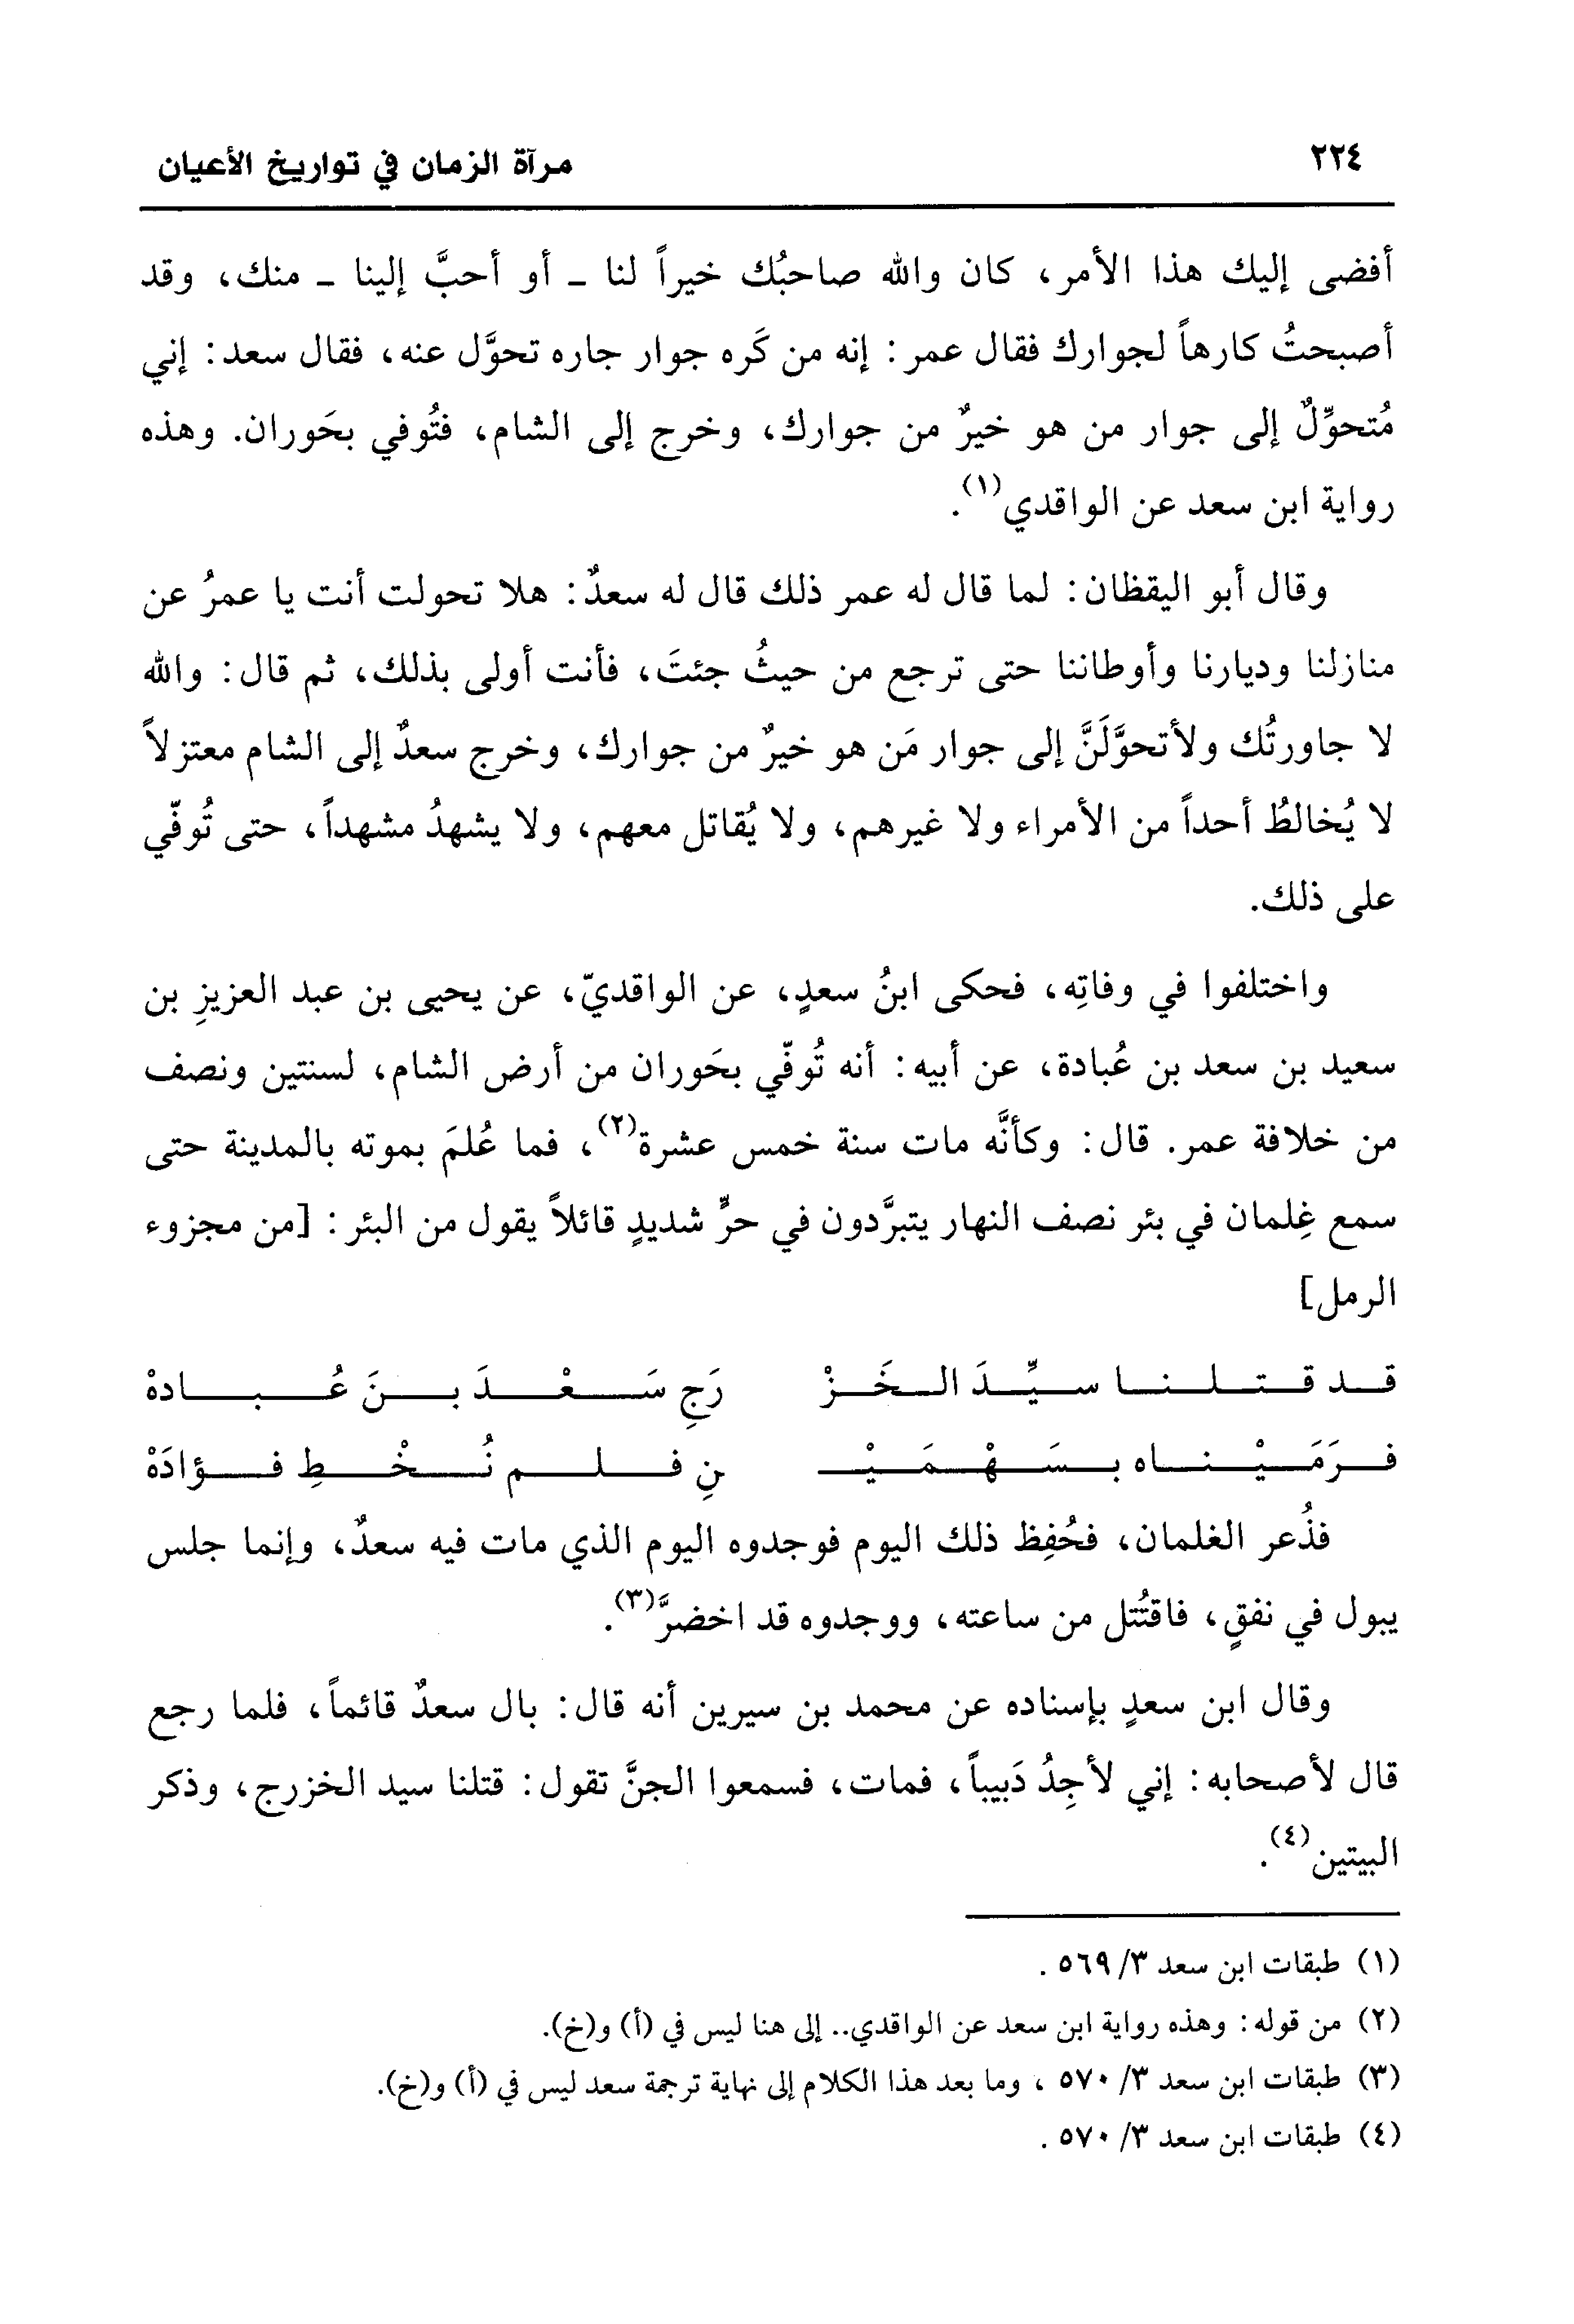 ٢٢٤ مرآة الزمان في تواريخ الأعيان
أفضى إليك هذا الأمر، كان والله صاحبُك خيراً لنا - أو أحبَّ إلينا - منك، وقد
أصبحتُ كارهاً لجوارك فقال عمر: إنه من كَره جوار جاره تحوَّل عنه، فقال سعد: إني
مُتحوِّلٌ إلى جوار من هو خيرٌ من جوارك، وخرج إلى الشام، فتُوفي بحَوران. وهذه
رواية ابن سعد عن الواقدي(١).
وقال أبو اليقظان: لما قال له عمر ذلك قال له سعدٌ: هلا تحولت أنت يا عمرُ عن
منازلنا وديارنا وأوطاننا حتى ترجع من حيثُ جئتَ، فأنت أولى بذلك، ثم قال: والله
لا جاورتُك ولأتحوَّلَنَّ إلى جوار مَن هو خيرٌ من جوارك، وخرج سعدٌ إلى الشام معتزلاً
لا يُخالطُ أحداً من الأمراء ولا غيرهم، ولا يُقاتل معهم، ولا يشهدُ مشهداً، حتى تُوفّي
على ذلك.
واختلفوا في وفاتِه، فحكى ابنُ سعدٍ، عن الواقديّ، عن يحيى بن عبد العزيزِ بن
سعيد بن سعد بن عُبادة، عن أبيه: أنه تُوفّي بحَوران من أرض الشام، لسنتين ونصف
من خلافة عمر. قال: وكأنَّه مات سنة خمس عشرة(٢)، فما عُلمَ بموته بالمدينة حتى
سمع غِلمان في بئر نصف النهار يتبرَّدون في حرٍّ شديدٍ قائلاً يقول من البئر: [من مجزوء
الرمل]
قد قتلنا سيِّدَ الخَزْ رَجِ سَعْدَ بنَ عُبادهْ
فرَمَيْناه بسَهْمَيْـ نِ فلم نُخْطِ فؤادَهْ
فذُعر الغلمان، فحُفِظ ذلك اليوم فوجدوه اليوم الذي مات فيه سعدٌ، وإنما جلس
يبول في نفقٍ، فاقتُتل من ساعته، ووجدوه قد اخضرَّ(٣).
وقال ابن سعدٍ بإسناده عن محمد بن سيرين أنه قال: بال سعدٌ قائماً، فلما رجع
قال لأصحابه: إني لأجِدُ دَبيباً، فمات، فسمعوا الجنَّ تقول: قتلنا سيد الخزرج، وذكر
البيتين(٤).
(١) طبقات ابن سعد ٣/ ٥٦٩ .
(٢) من قوله: وهذه رواية ابن سعد عن الواقدي.. إلى هنا ليس في (أ) و(خ).
(٣) طبقات ابن سعد ٣/ ٥٧٠ ، وما بعد هذا الكلام إلى نهاية ترجمة سعد ليس في (أ) و(خ).
(٤) طبقات ابن سعد ٣/ ٥٧٠ .